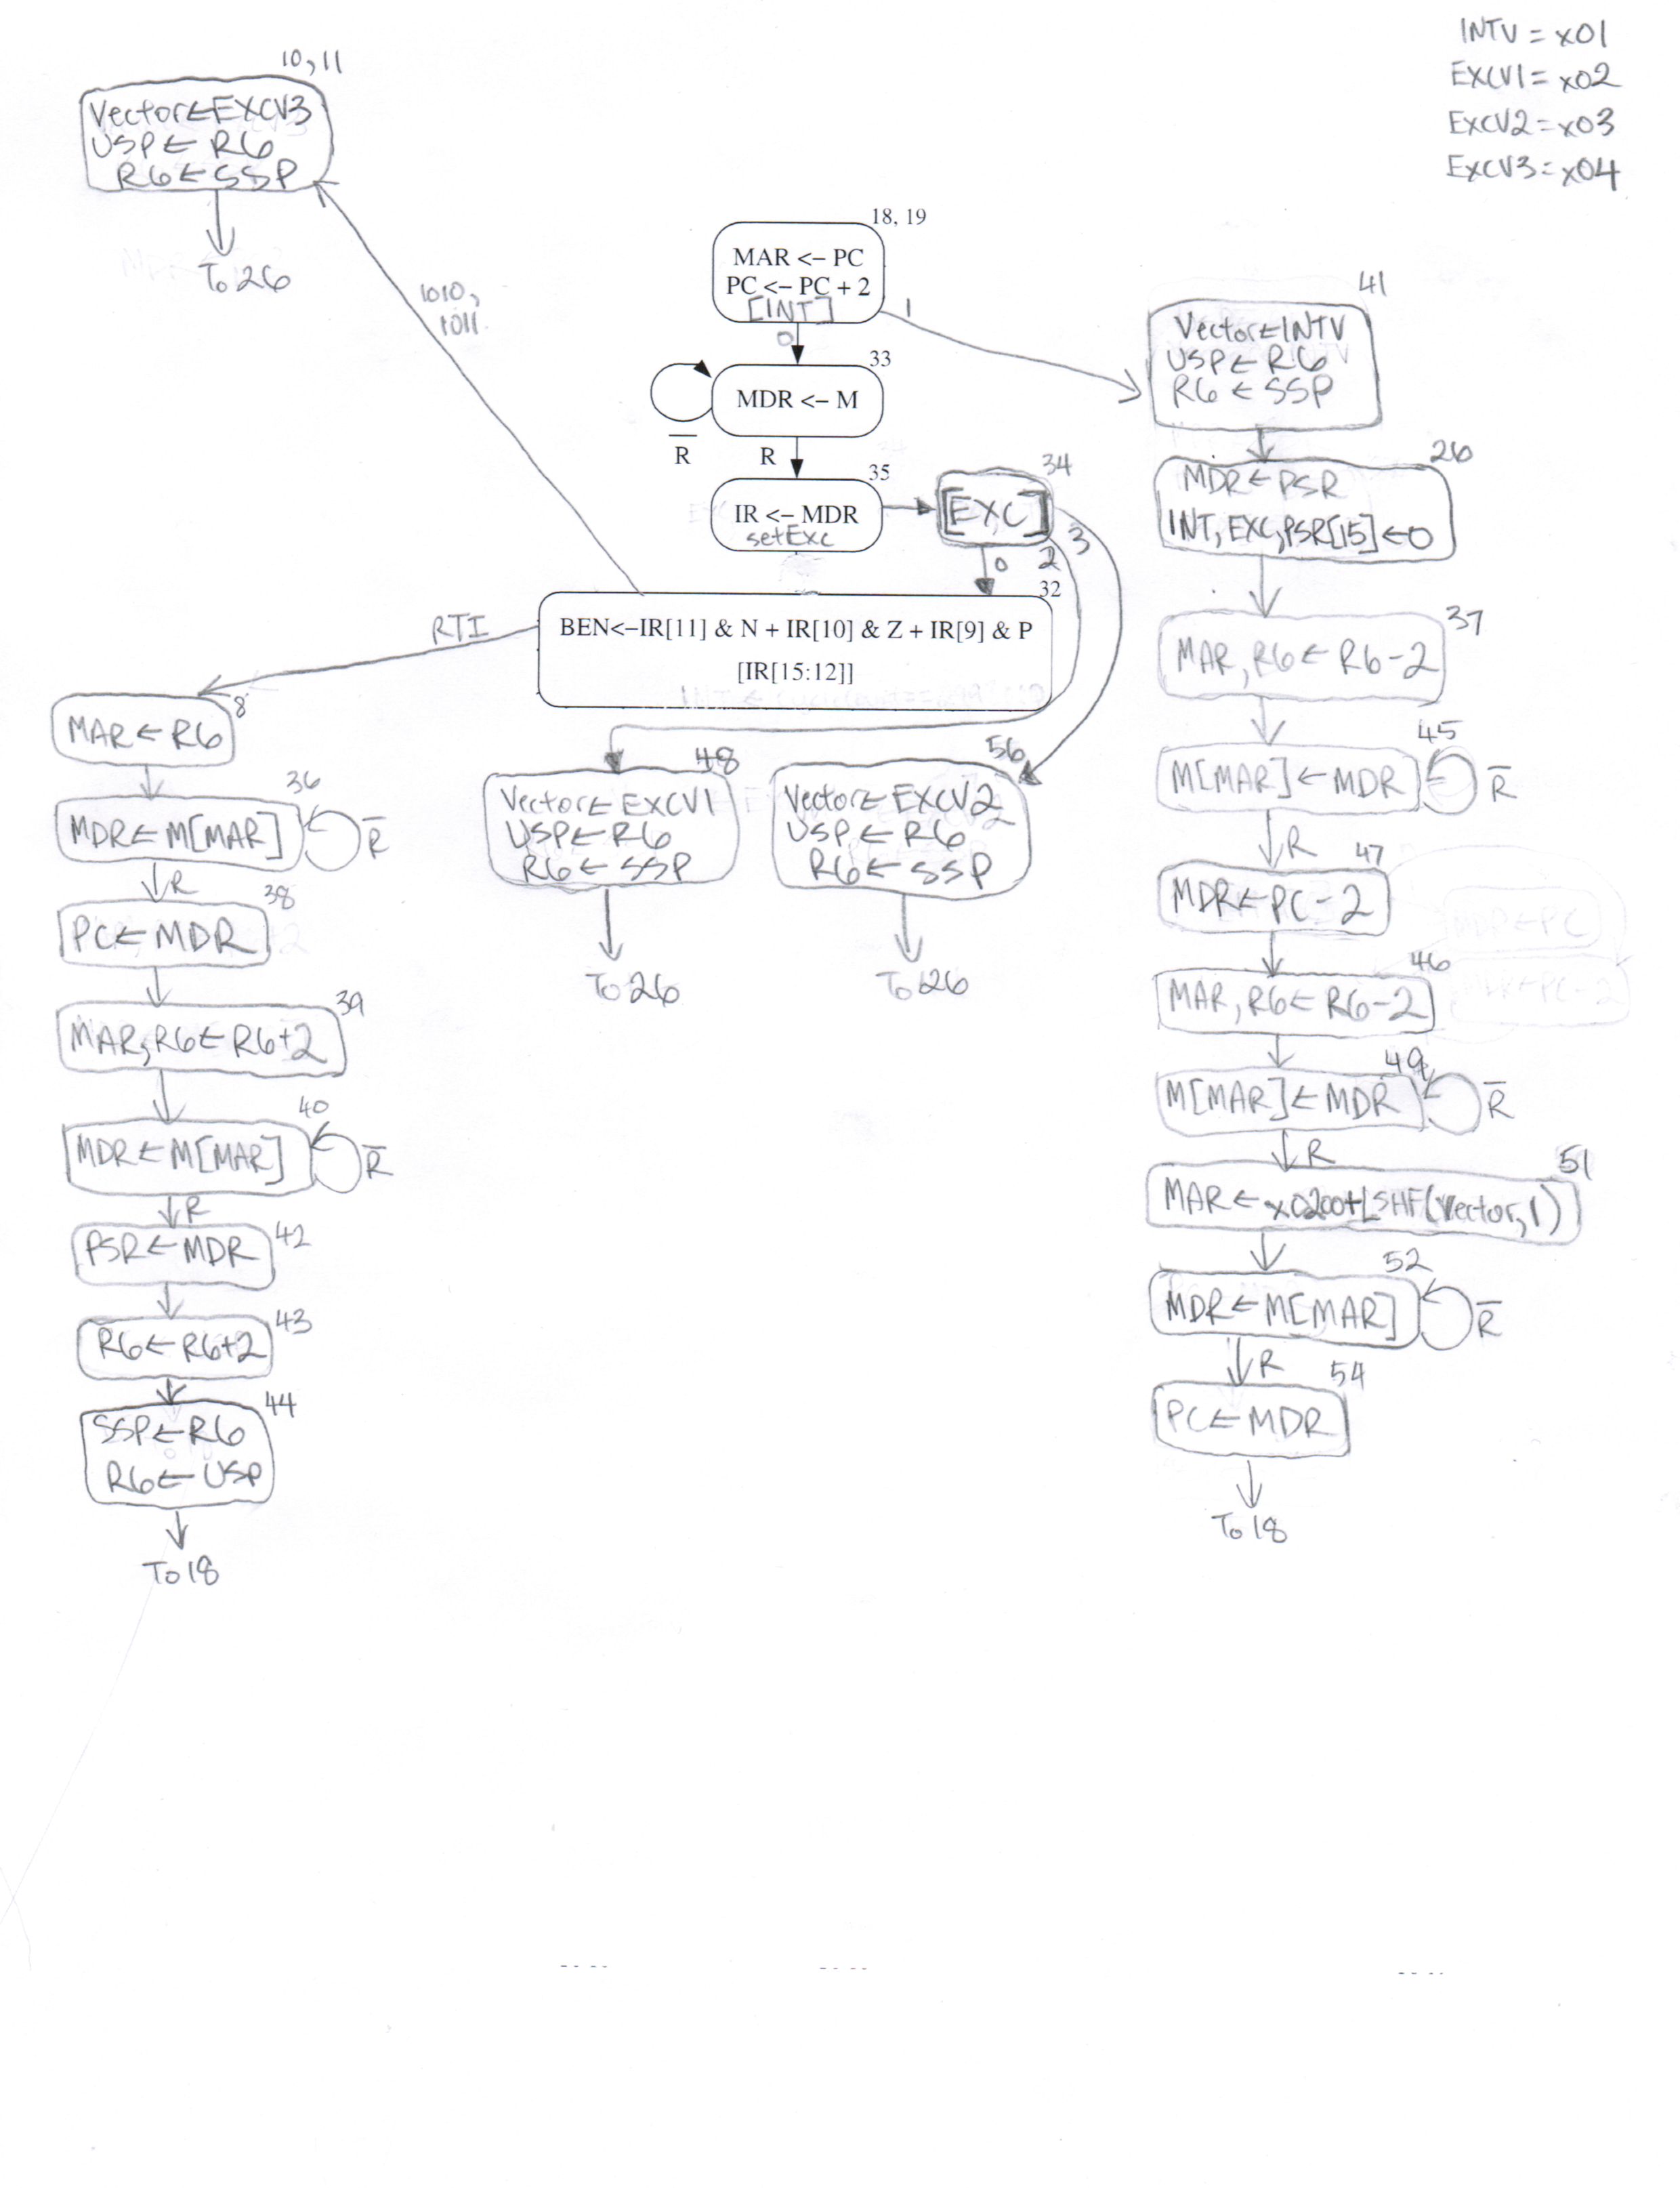 INTV = x01
EXCV1 = x02
EXCV2 = x03
EXCV3 = x04
10, 11
Vector ← EXCV3
USP ← R6
R6 ← SSP
To 26
1010,
1011
18, 19
MAR <– PC
PC <– PC + 2
[INT]
0
1
33
MDR <– M
R̅
R
35
IR <– MDR
setExc
34
[EXC]
0
2
3
32
BEN<–IR[11] & N + IR[10] & Z + IR[9] & P
[IR[15:12]]
RTI
8
MAR ← R6
36
MDR ← M[MAR]
R̅
R
38
PC ← MDR
39
MAR, R6 ← R6+2
40
MDR ← M[MAR]
R̅
R
42
PSR ← MDR
43
R6 ← R6+2
44
SSP ← R6
R6 ← USP
To 18
48
Vector ← EXCV1
USP ← R6
R6 ← SSP
To 26
56
Vector ← EXCV2
USP ← R6
R6 ← SSP
To 26
41
Vector ← INTV
USP ← R6
R6 ← SSP
26
MDR ← PSR
INT, EXC, PSR[15] ← 0
37
MAR, R6 ← R6-2
45
M[MAR] ← MDR
R̅
R
47
MDR ← PC-2
46
MAR, R6 ← R6-2
49
M[MAR] ← MDR
R̅
R
51
MAR ← x0200+LSHF(Vector,1)
52
MDR ← M[MAR]
R̅
R
54
PC ← MDR
To 18